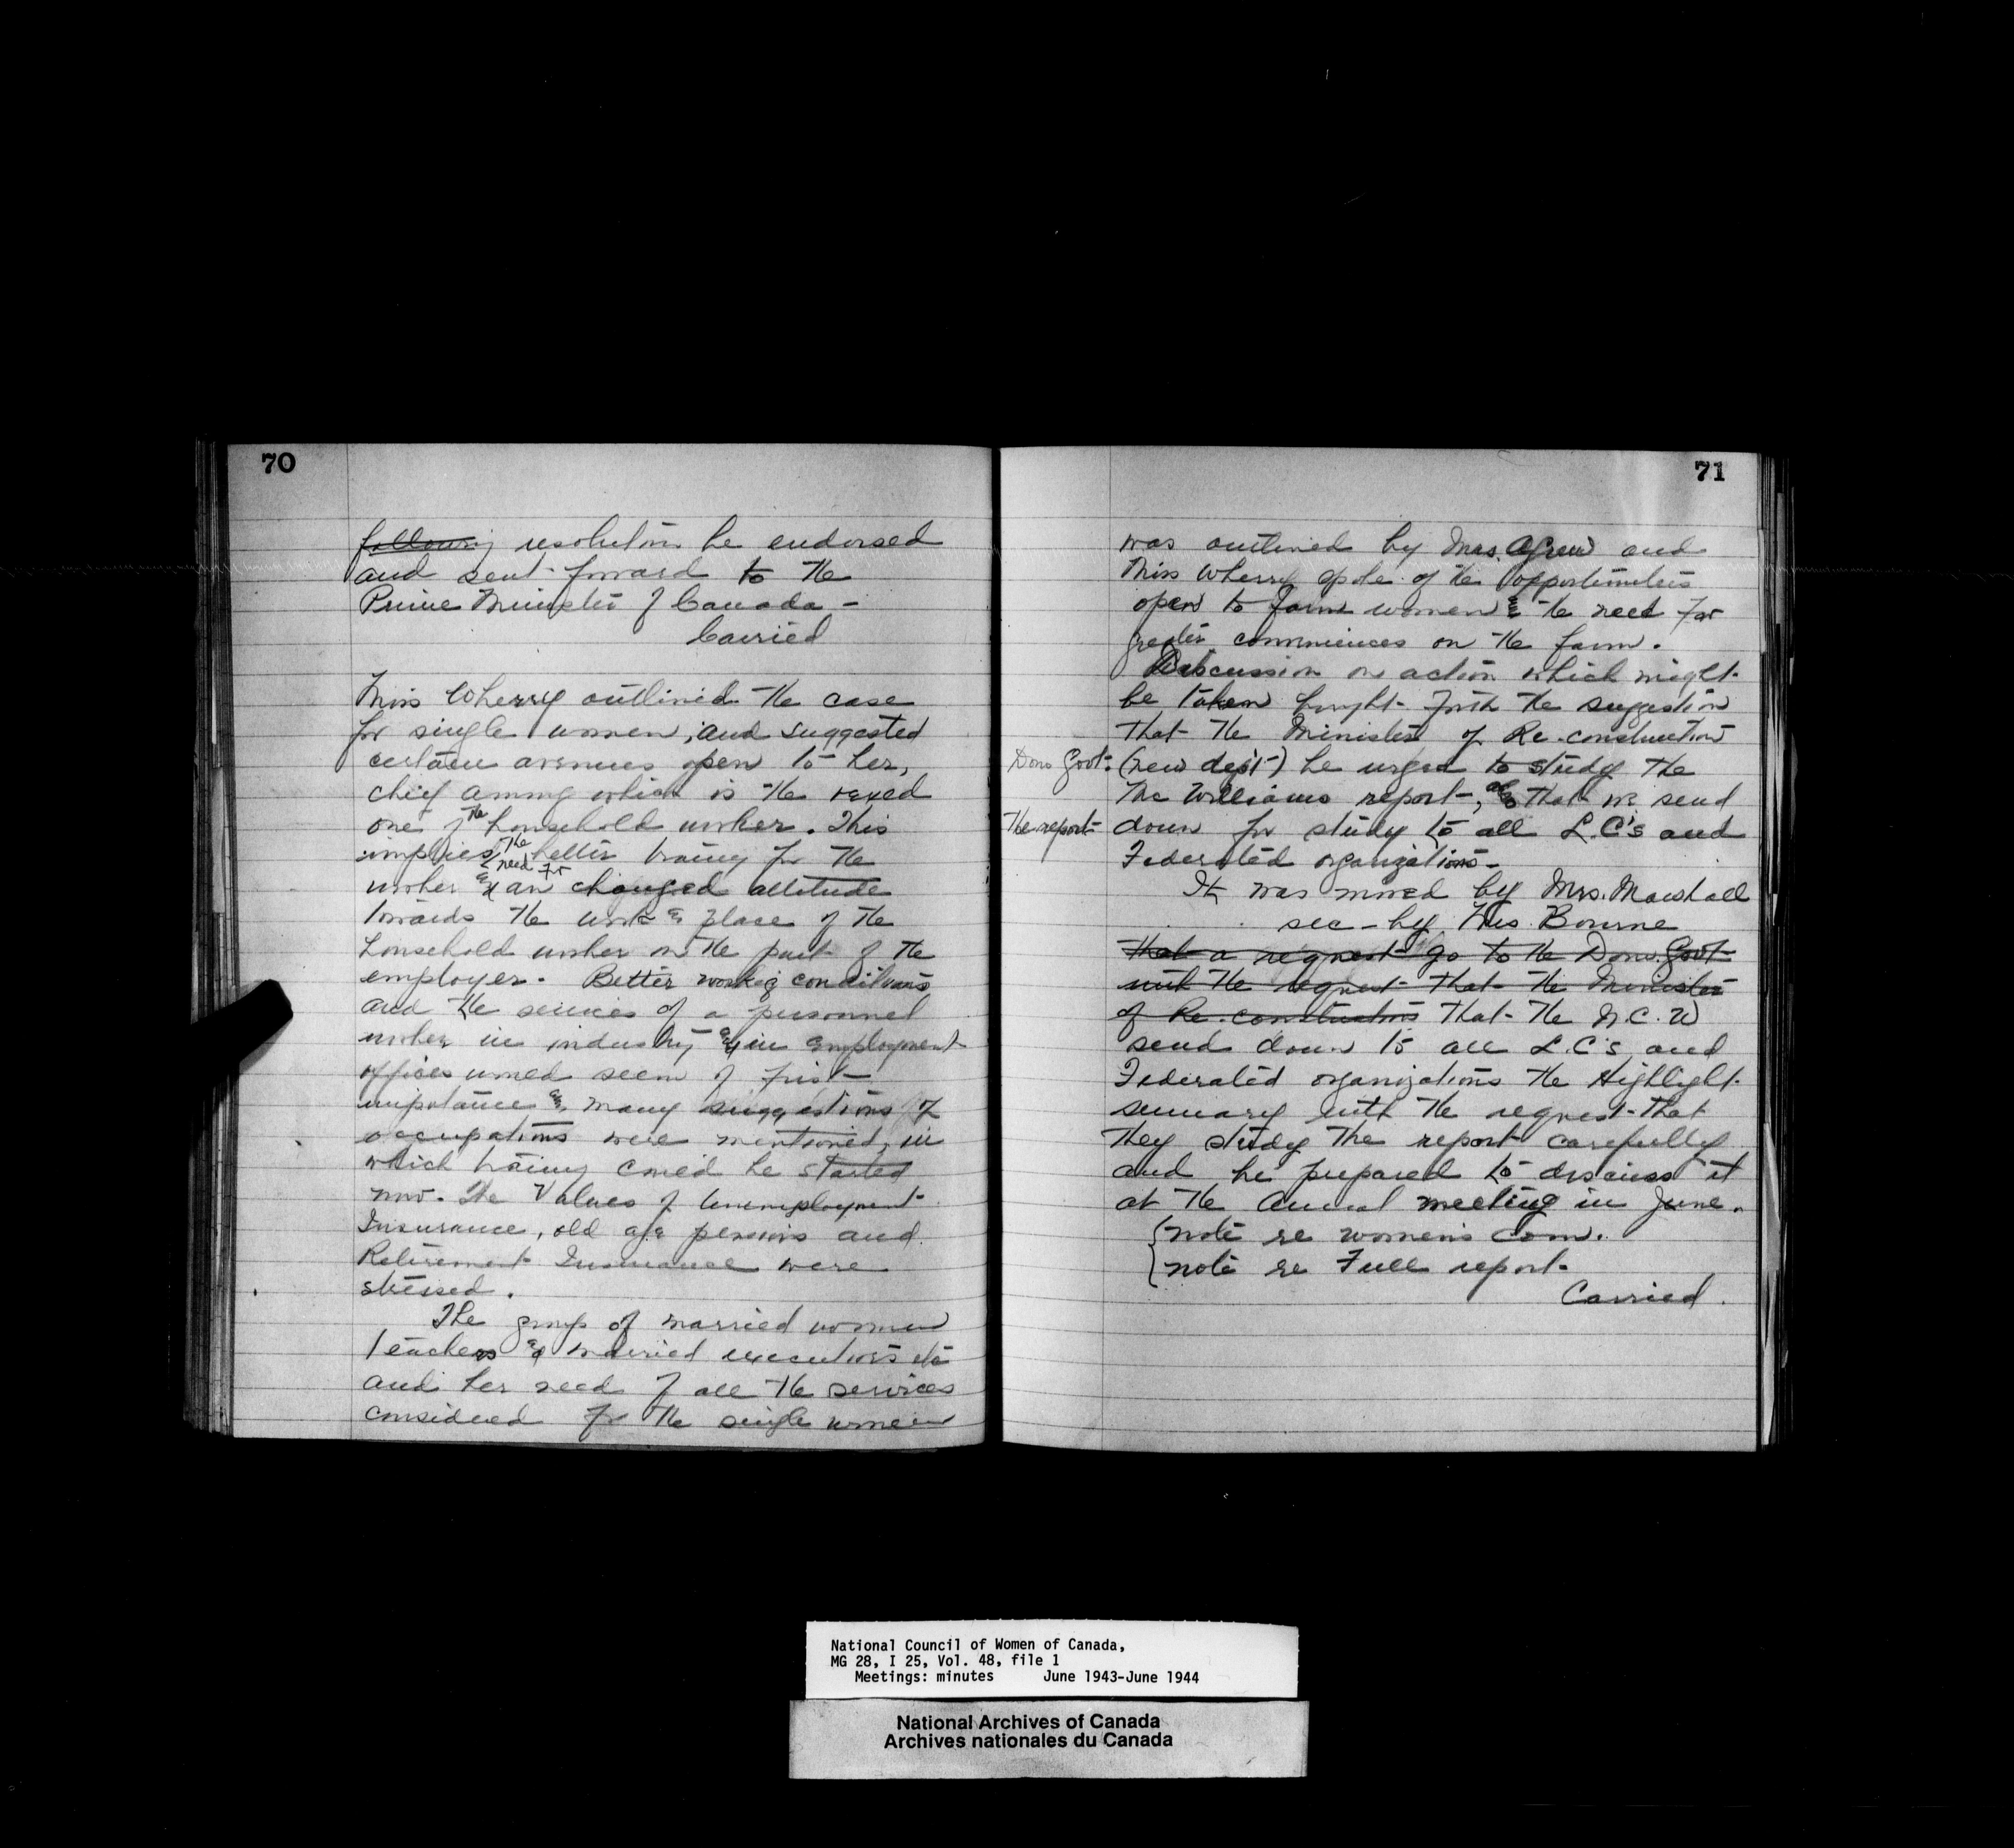 70
following resolution be endorsed
and sent forward to the
Prime Minister of Canada -
Carried
Miss Wherry outlined the case
for single women, and suggested
certain avenues open to her,
chief among which is the vexed
one of the household worker. This
implies the need for better training for the
worker & an changed attitude
towards the work & place of the
household worker on the part of the
employer. Better working conditions
and the services of a personnel
worker in industry & in employment
offices would seem of first
importance & many suggestions of
occupations were mentioned, in
which training could be started
now. The Values of Unemployment
Insurance, old age pensions and
Retirement Insurance were
stressed.
The group of married women
teachers & married executives etc
and her need of all the services
considered for the single women
71
was outlined by Mrs. Agnew and
Miss Wherry spoke of the opportunities
open to farm women & the need for
greater conveniences on the farm.
Discussion on action which might
be taken brought forth the suggestion
that the Minister of Re-construction
Dom Govt. (new dep't) be urged to study the
Mc Williams report, also that we send
the report down for study to all L.C's and
Federated organizations -
It was moved by Mrs. Marshall
sec - by Mrs. Bourne
that a request go to the Dom. Govt
with the request that the Minister
of Re-construction that the N.C.W
send down to all L.C's and
Federated organizations the Highlight
summary with the request that
they study the report carefully
and be prepared to discuss it
at the Annual meeting in June.
{note re women's Com.
{note re Full report
Carried.
National Council of Women of Canada,
MG 28, I 25, Vol. 48, file 1
Meetings: minutes June 1943-June 1944
National Archives of Canada
Archives nationales du Canada